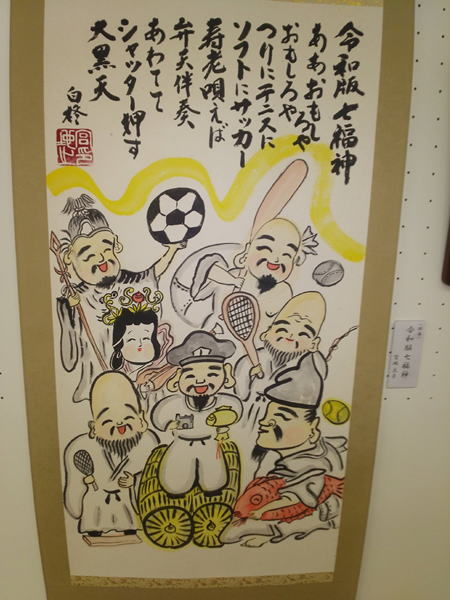 令和版七福神
ああおもしろや
おもしろや
つりにテニスに
ソフトにサッカー
寿老唄えば
弁天伴奏
あわてて
シャッター押す
大黒天
白柊
令和版七福神